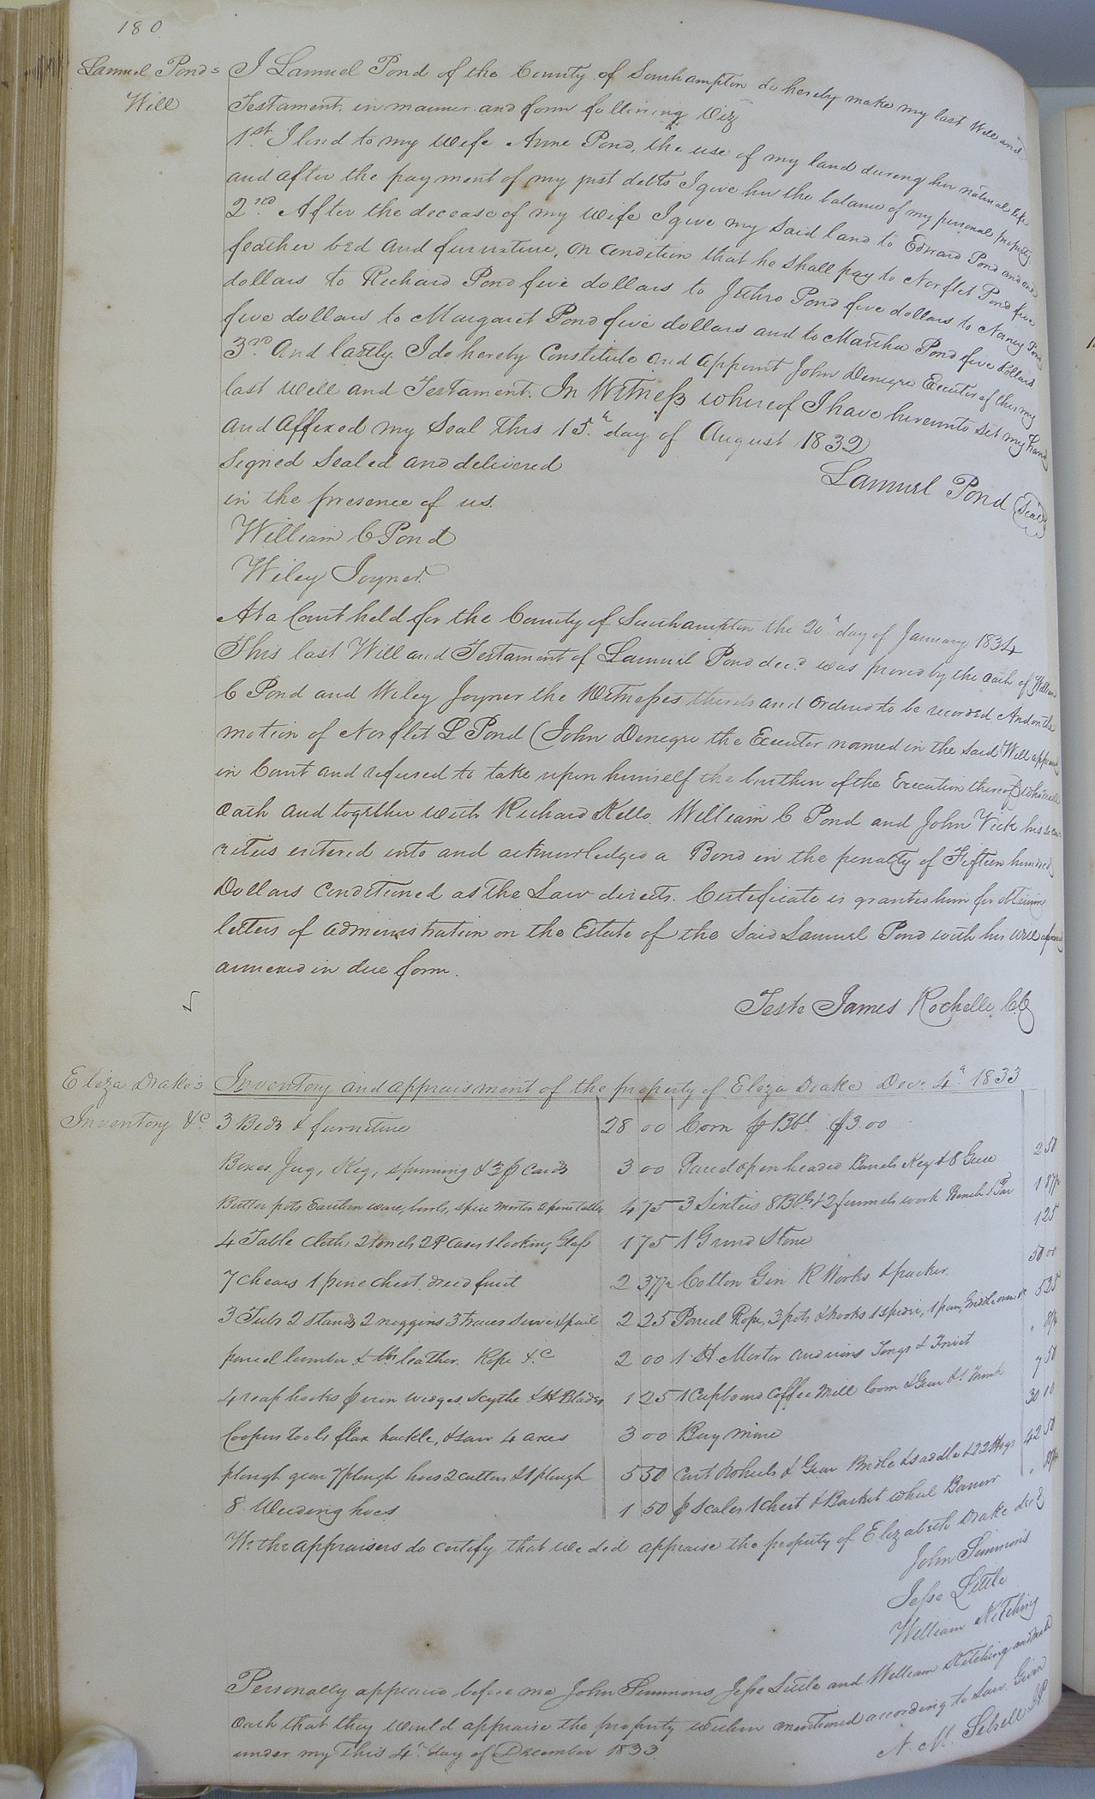 180
Samuel Pond's Will
I Samuel Pond of the County of Southampton do hereby make my last Will and
Testament in manner and form following Viz
1st I lend to my Wife Anne Pond, the use of my land during her natural life
and after the payment of my just debts I give her the balance of my personal property
2nd After the decease of my Wife I give my said land to Edward Pond and one
feather bed and furniture, on condition that he shall pay to Norflet Pond five
dollars to Richard Pond five dollars to Jethro Pond five dollars to Nancy Pond
five dollars to Margaret Pond five dollars and to Martha Pond five dollars
3rd And lastly I do hereby Constitute and appoint John Denegre Executor of this my
last Will and Testament. In Witness whereof I have hereunto set my hand
and affixed my Seal this 15th day of August 1832
Signed Sealed and delivered
Samuel Pond (Seal)
in the presence of us.
William C Pond
Wiley Joyner
At a Court held for the County of Southampton the 20th day of January 1834
This last Will and Testament of Samuel Pond decd was proved by the oath of William
C Pond and Wiley Joyner the Witnesses thereto and ordered to be recorded And on the
motion of Norflet L Pond (John Denegre the Executor named in the said Will appeared
in Court and refused to take upon himself the burthen of the Execution thereof) who made
oath and together with Richard Kello, William C Pond and John Vick his secu-
rities entered into and acknowledged a Bond in the penalty of Fifteen hundred
Dollars conditioned as the Law directs. Certificate is granted him for obtaining
letters of administration on the Estate of the said Samuel Pond with his will
annexed in due form.
Teste James Rochelle, CC
Eliza Drake's Inventory &c
Inventory and appraisment of the property of Eliza Drake Decr 4th 1833
3 Beds & furniture 28 00 Corn Bbl $3.00
Boxes, Jug, Keg, spinning & cards 3 00 Parcel open headed Barrels Keg & 8 Geese 2 50
Butter pots Earthen ware, bowls, spice morter 4 75 3 Sixties 8 Bbls & 2 funnels work Bench & Jar 1 87½
4 Table cloths 2 towels 2 P Cases 1 looking Glass 1 75 1 Grind Stone 1 25
7 chears 1 pine chest, dried fruit 2 37½ Cotton Gin & packer 50 00
3 Tubs 2 stands 2 noggins 3 trays sieve & pail 2 25 Parcel Rope, 3 pots & hooks 1 spider, 5 25
parcel lumber & leather, Rope &c 2 00 1 Morter andirons Tongs & Trivet
4 reap hooks iron wedges, Scythe & Blades 1 25 1 Cupboard Coffee Mill loom & Gear & 1 Trunk 7 50
Coopers tools flax hackle, & saw 4 axes 3 00 Bay mare 30 10
plough gear 7 plough hoes 2 cutters & 1 plough 5 50 Cart Wheels & Gear Bridle & saddle & 22 Hogs 42 50
8 Weeding hoes 1 50 Scales 1 Chest & Basket wheel Barrow
We the appraisers do certify that we did appraise the property of Elizabeth Drake decd
John Simmons
Jesse Little
William Kitching
Personally appeared before me John Simmons, Jesse Little and William Kitching and made
oath that they would appraise the property within mentioned according to Law. Given
under my this 4th day of December 1833.
N. M. Sebrell J.P.